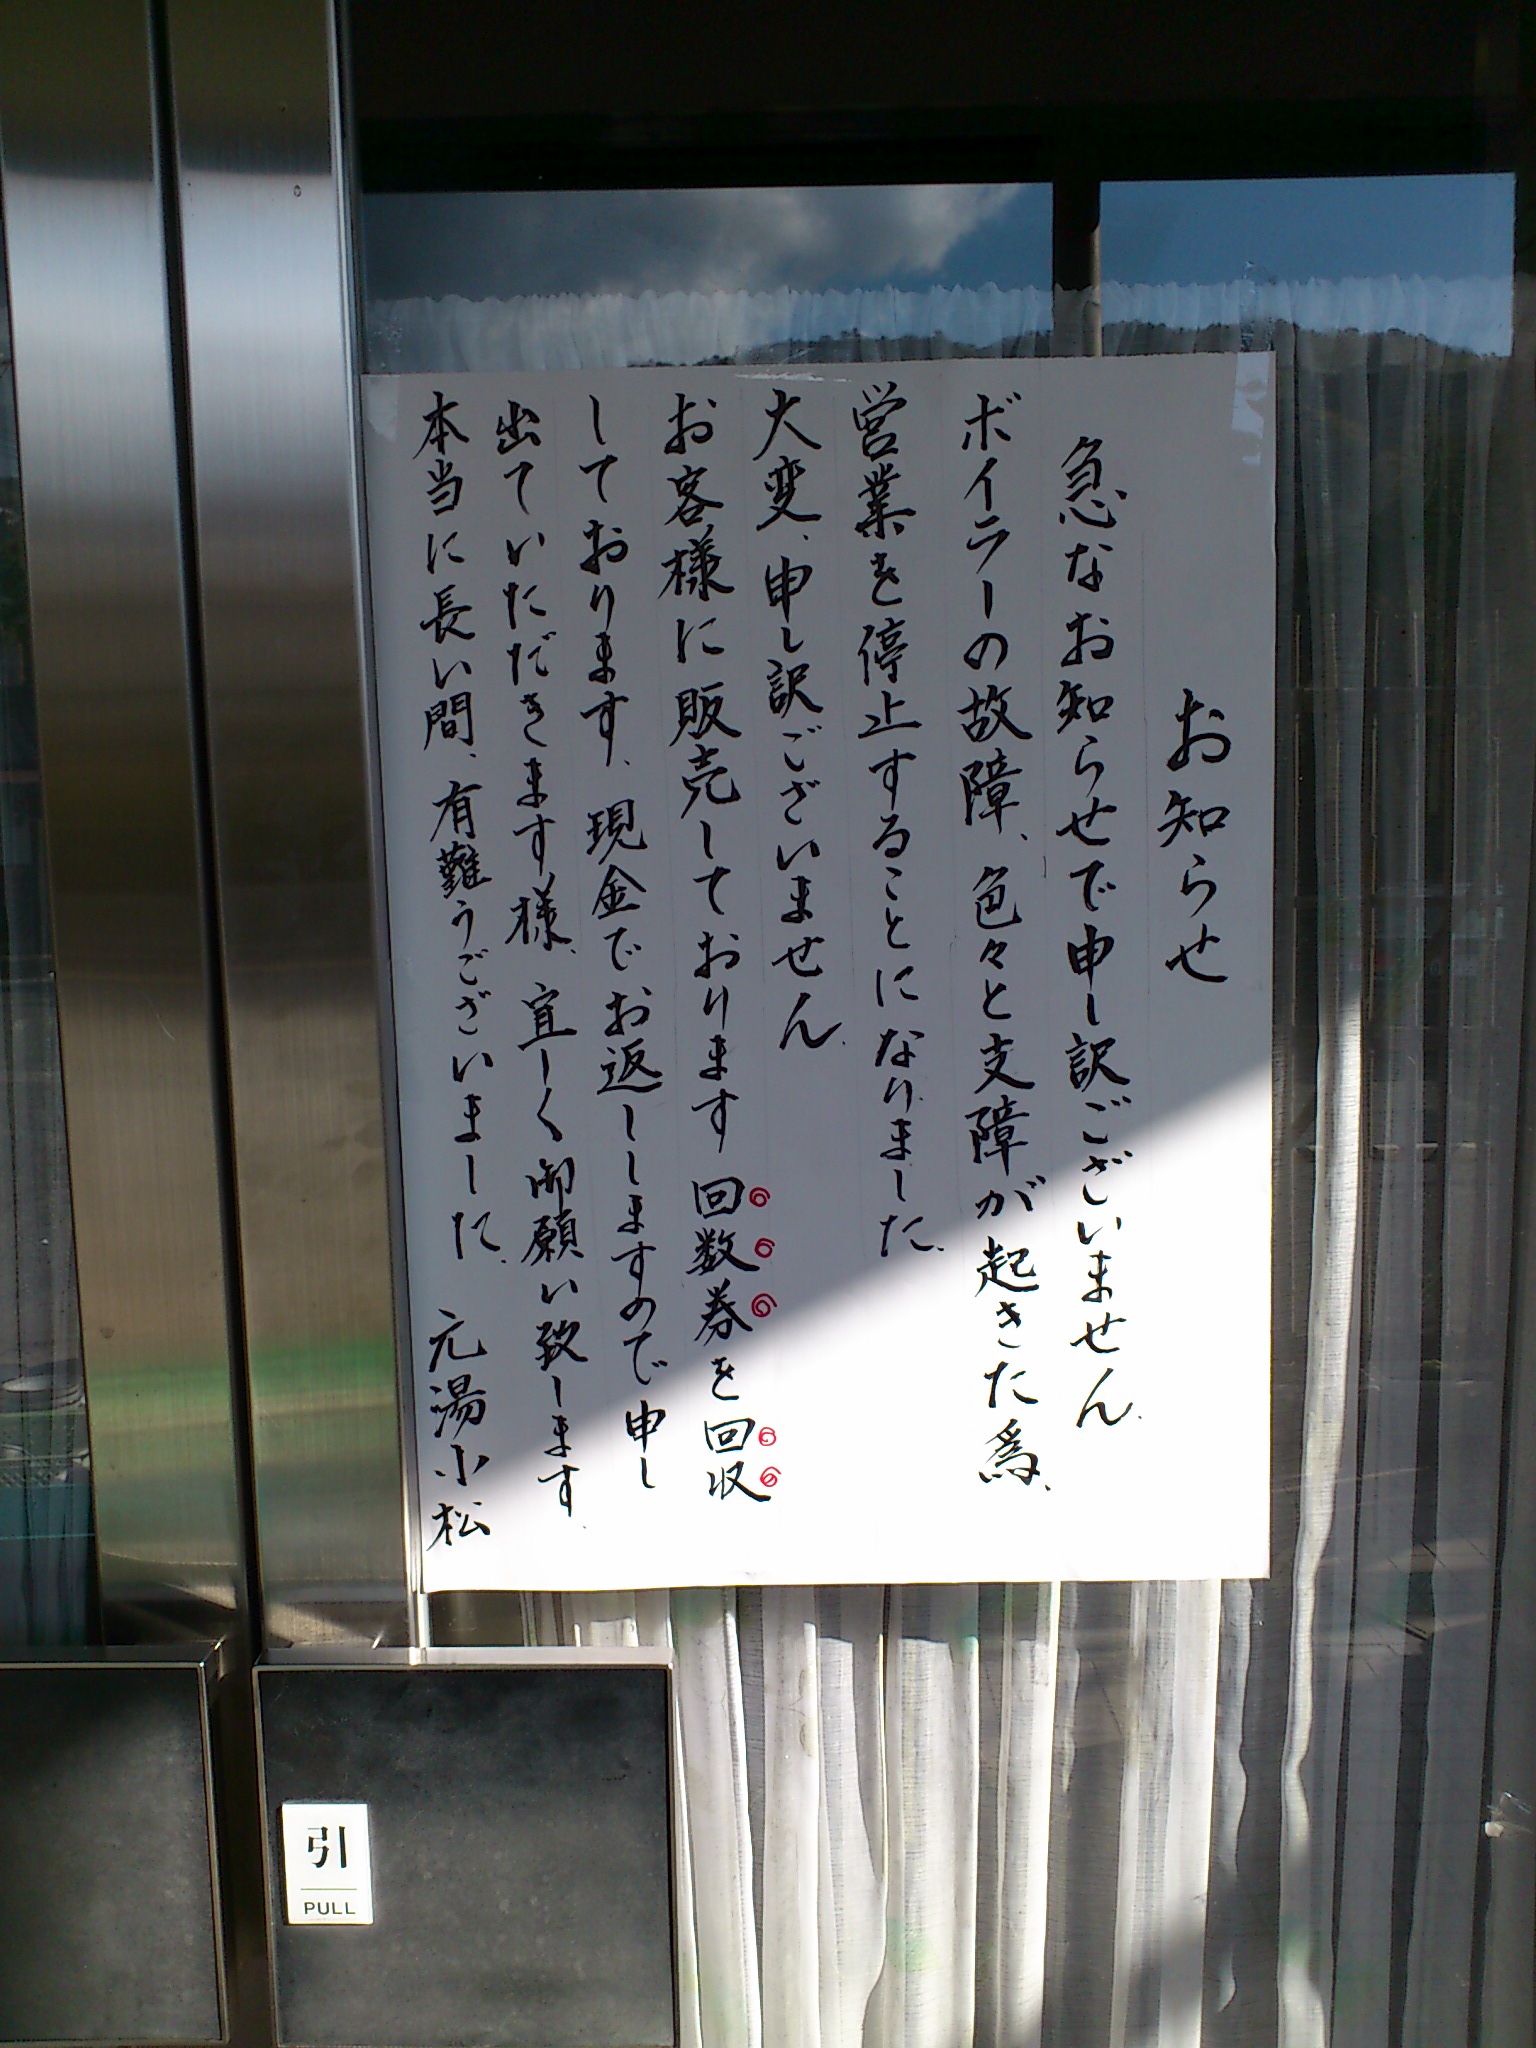 お知らせ
急なお知らせで申し訳ございません
ボイラーの故障、色々と支障が起きた為、
営業を停止することになりました。
大変、申し訳ございません。
お客様に販売しております回数券を回収
しております、現金でお返ししますので申し
出ていただきます様、宜しく御願い致します
本当に長い間、有難うございました。 元湯小松
引
PULL